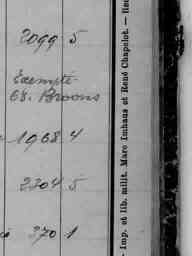 2099 5
Exempté
68. Broons
1968 4
2304 5
370 1
— Imp. et lib. milit. Marc Imhaus et René Chapelot. —